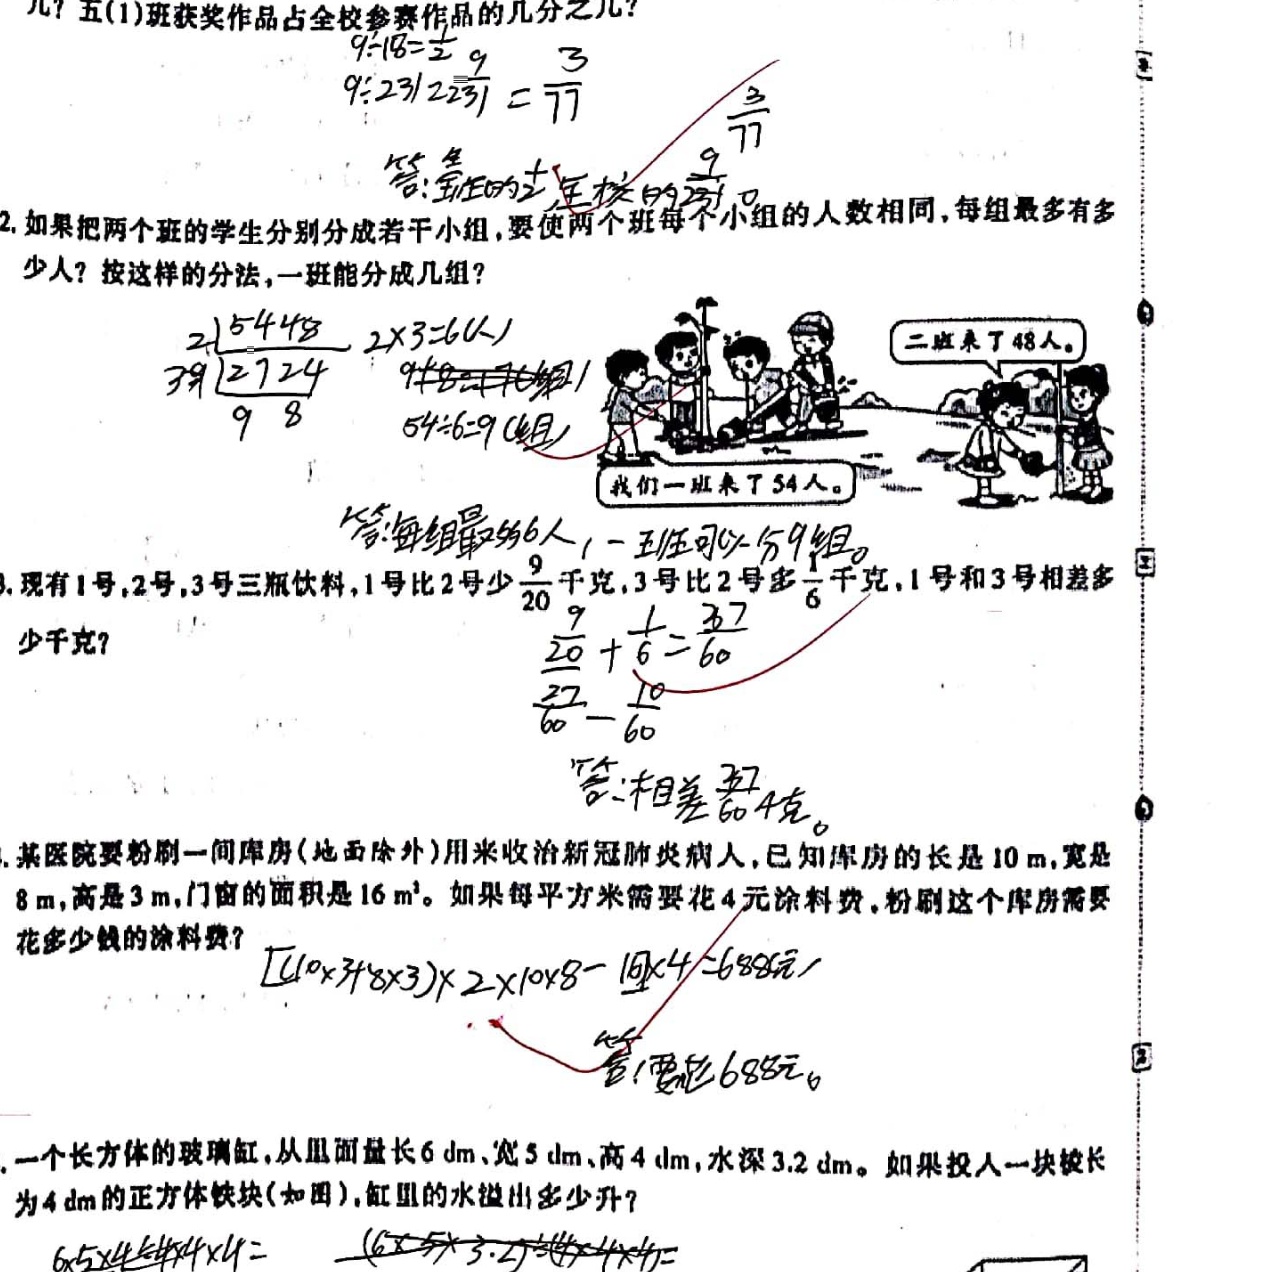 几？五(1)班获奖作品占全校参赛作品的几分之几？
9÷18=1/2
9÷231=9/231=3/77
3/77
答:全班的1/2,全校的9/231。
2.如果把两个班的学生分别分成若干小组,要使两个班每个小组的人数相同,每组最多有多
少人？按这样的分法,一班能分成几组？
2 54 48 2×3=6(人)
39 27 24
9 8 54÷6=9(组)
二班来了48人。
我们一班来了54人。
答:每组最多6人,一班可以分9组。
3.现有1号,2号,3号三瓶饮料,1号比2号少9/20千克,3号比2号多1/6千克,1号和3号相差多
少千克？
9/20+1/6=37/60
27/60-10/60
答:相差37/60千克。
.某医院要粉刷一间库房(地面除外)用来收治新冠肺炎病人,已知库房的长是10 m,宽是
8 m,高是3 m,门窗的面积是16 m²。如果每平方米需要花4元涂料费,粉刷这个库房需要
花多少钱的涂料费？
[(10×3+8×3)×2×10×8-16]×4=688(元)
答:要花688元。
.一个长方体的玻璃缸,从里面量长6 dm、宽5 dm、高4 dm,水深3.2 dm。如果投入一块棱长
为4 dm的正方体铁块(如图),缸里的水溢出多少升？